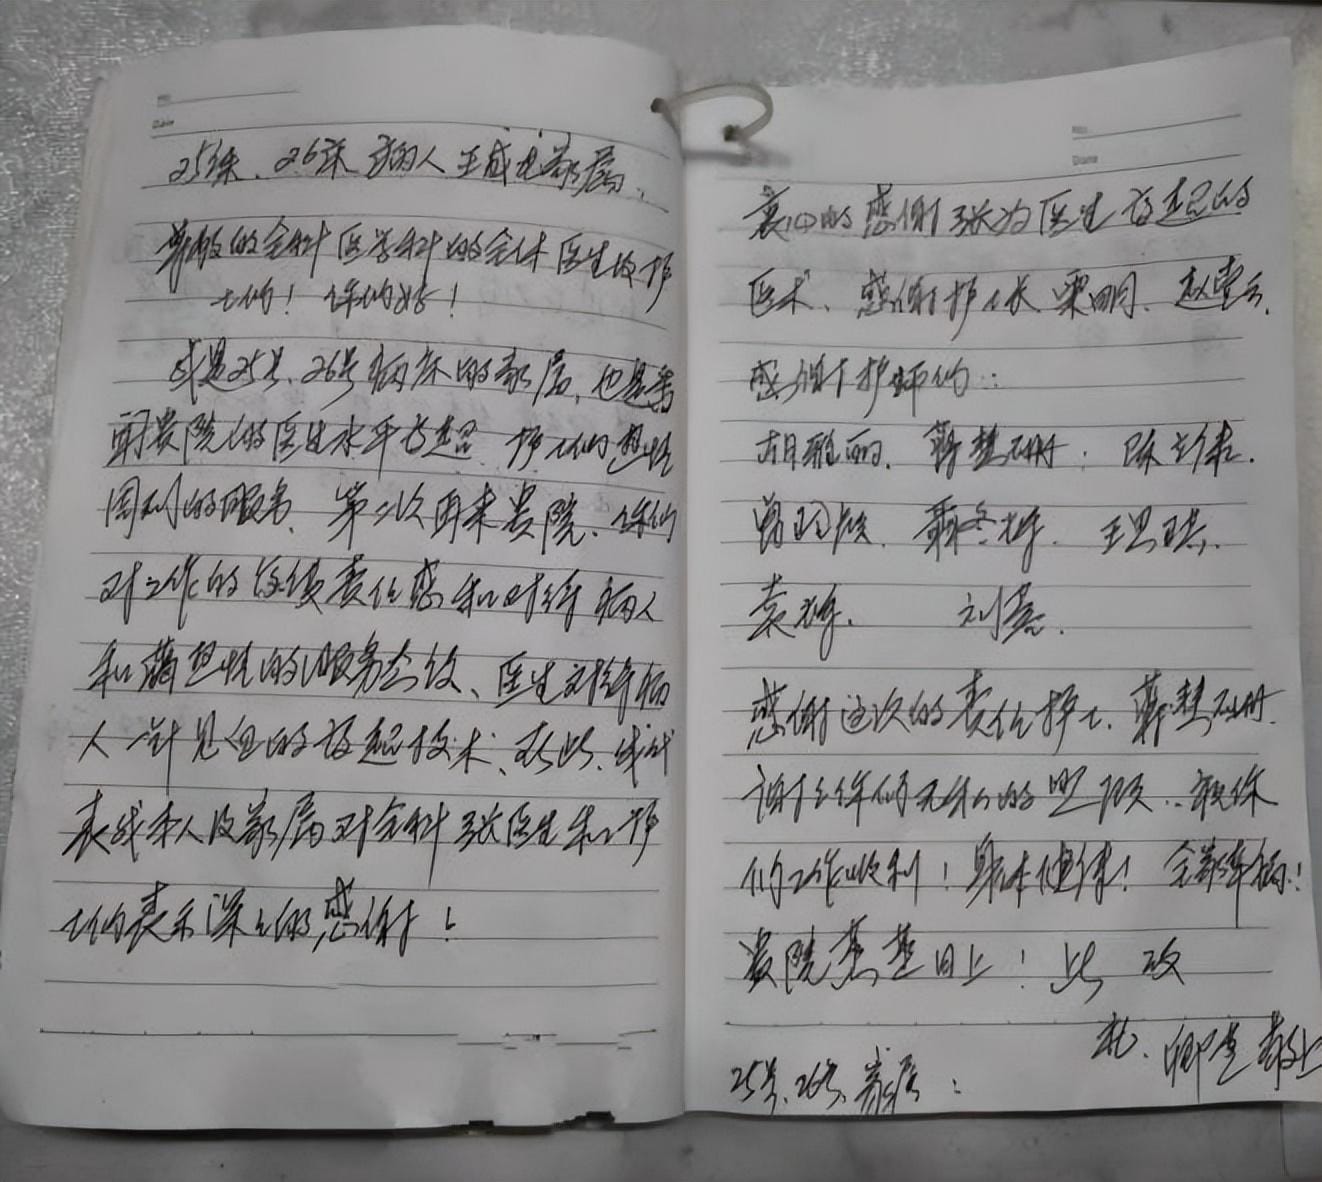 Date
25床、26床 病人王成 家属、
尊敬的全科医学科的全体医生及护
士们！你们好！
我是25号、26号病床的家属，也是
贵院的医生水平高超 护士们热情
周到的服务、第二次再来贵院、你们
对工作的 责任感和对待病人
和蔼热情的服务态度、医生对待病
人 的高超技术、对此、
表我本人及家属对全科张医生和护
士们表示深深的感谢！
Date
衷心的感谢张为医生高超的
医术、感谢护士长 栗明、赵雪云、
感谢护师们：
胡雅丽、 陈
曾 聂冬梅、王思琪、
袁梅、刘
感谢这次的责任护士、
谢谢你们无私的照顾、祝你
们工作顺利！身体健康！全家幸福！
贵院蒸蒸日上！此致
礼、 敬上
25号、26号、家属：